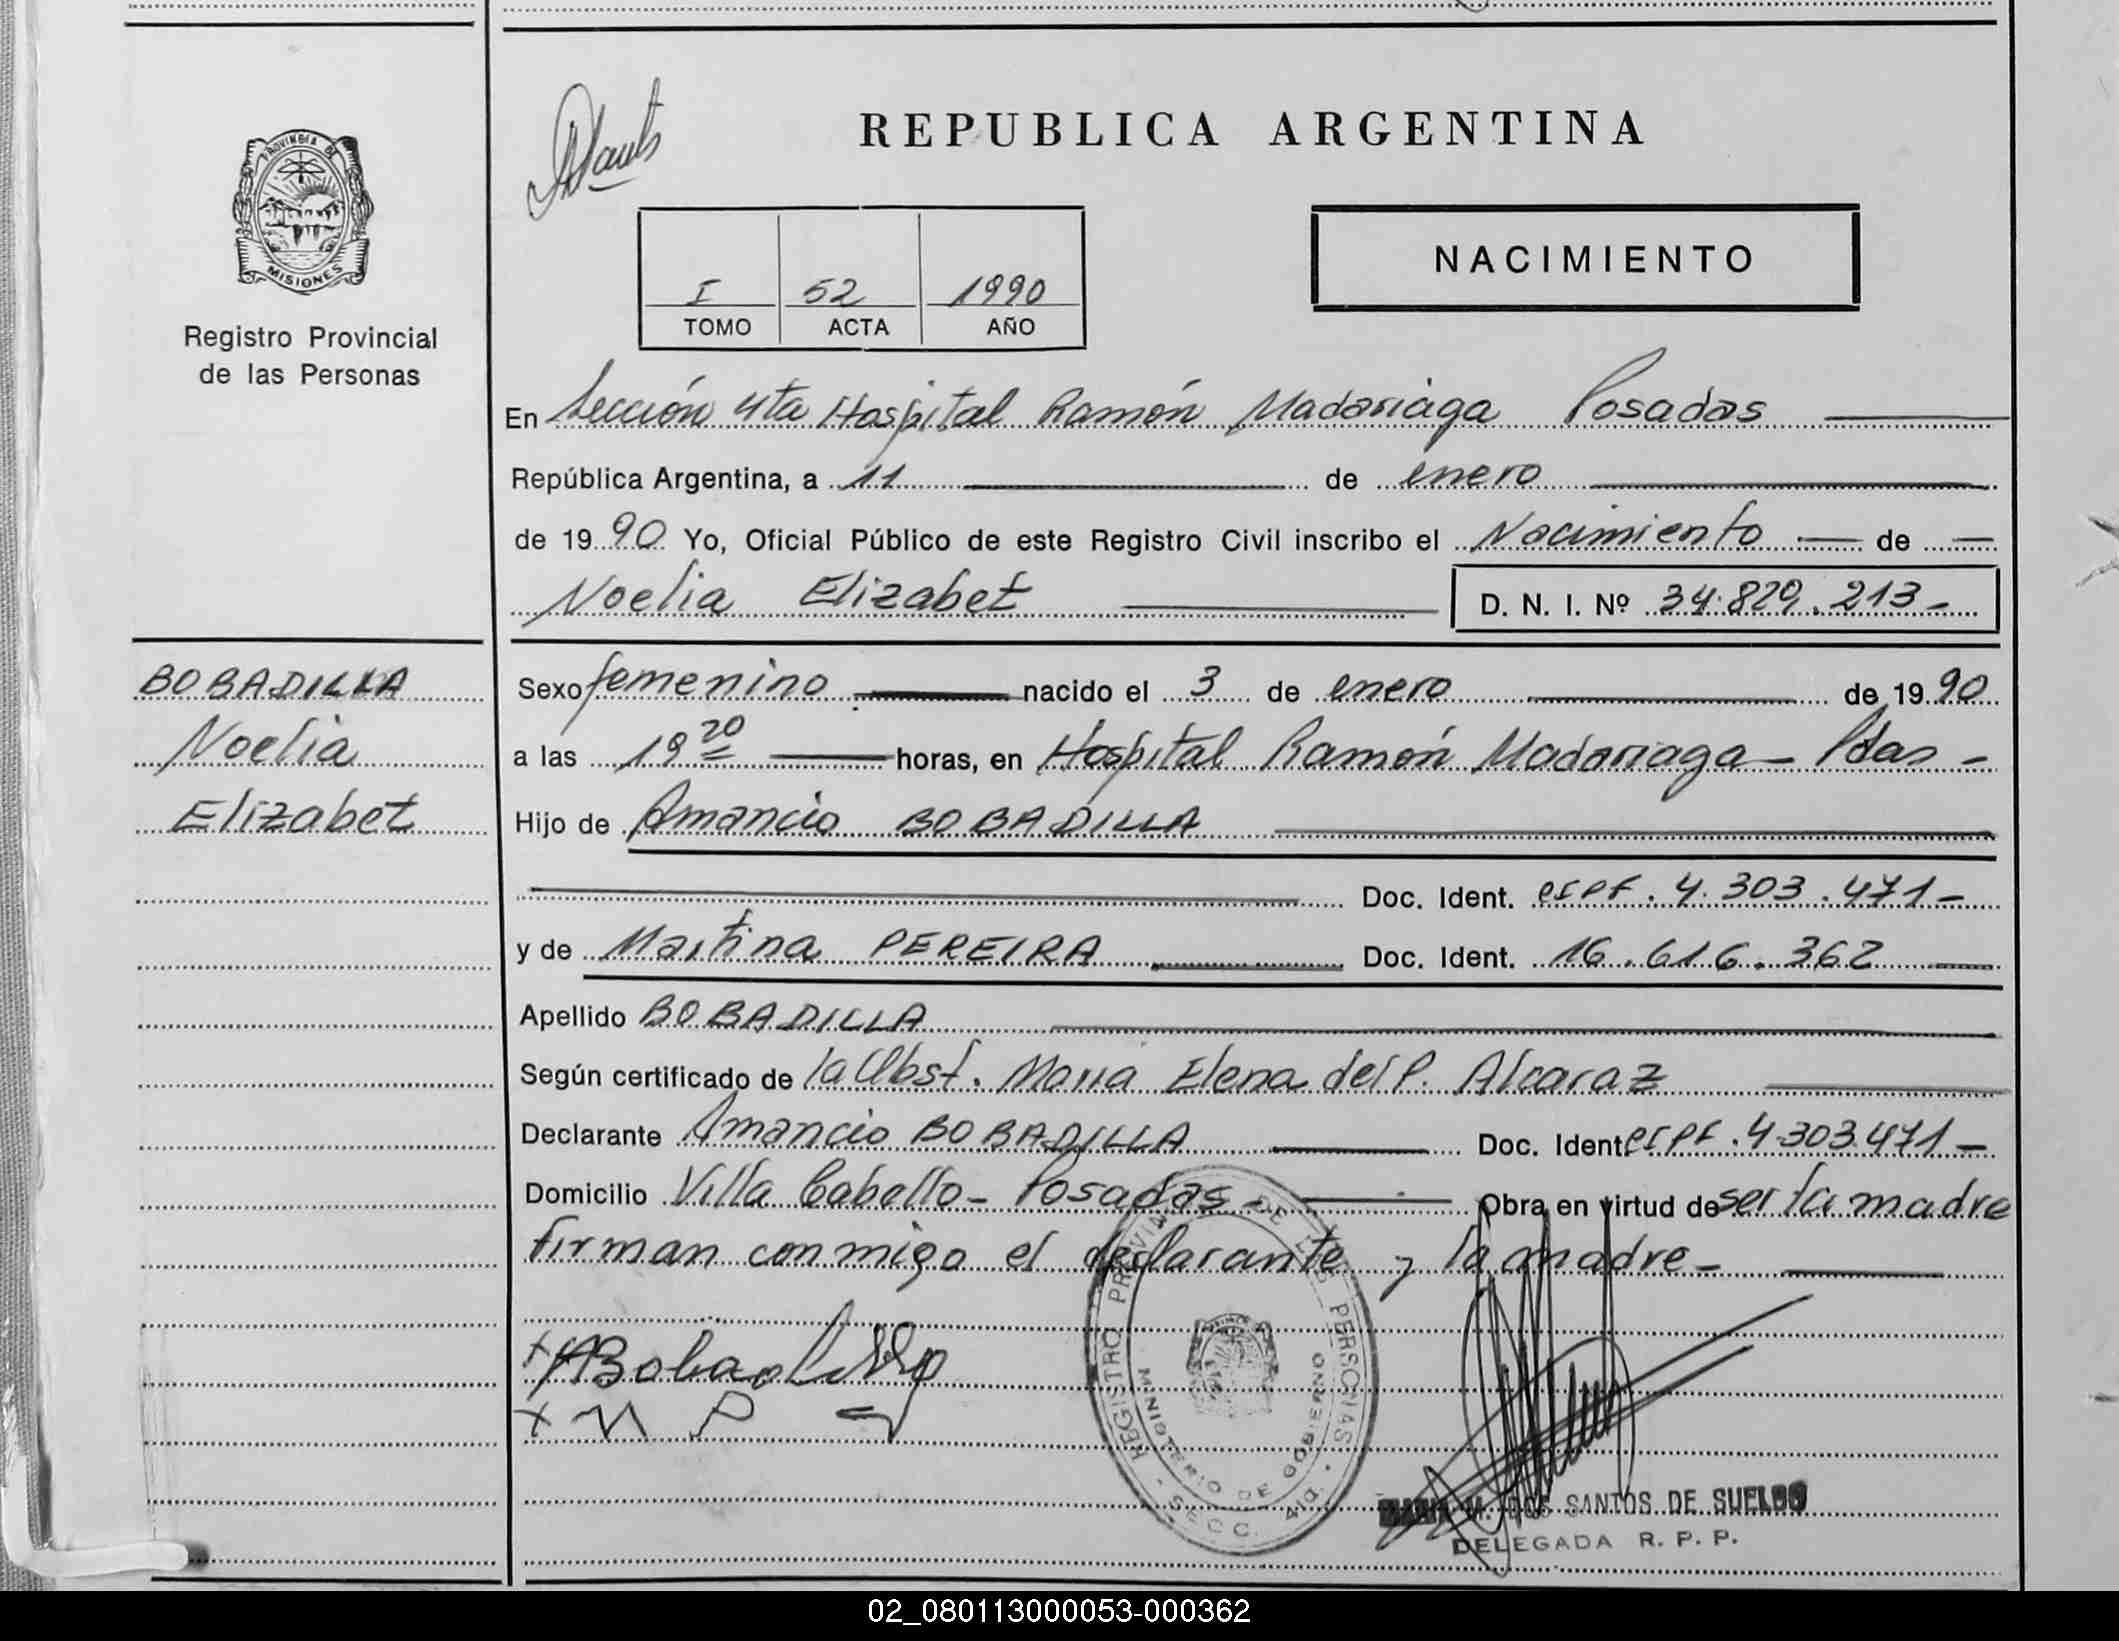 REPUBLICA ARGENTINA
PROVINCIA DE
MISIONES
Registro Provincial
de las Personas
NACIMIENTO
I 52 1990
TOMO ACTA AÑO
En Sección 4ta Hospital Ramón Madariaga Posadas
República Argentina, a 11 de enero
de 1990 Yo, Oficial Público de este Registro Civil inscribo el Nacimiento de
Noelia Elizabet D. N. I. Nº 34.829.213-
BOBADILLA
Noelia
Elizabet
Sexo femenino nacido el 3 de enero de 1990
a las 19 20 horas, en Hospital Ramón Madariaga - Pdas -
Hijo de Amancio BOBADILLA
Doc. Ident. espf. 4.303.471-
y de Martina PEREIRA Doc. Ident. 16.616.362
Apellido BOBADILLA
Según certificado de la Obst. María Elena del P. Alcaraz
Declarante Amancio BOBADILLA Doc. Ident. espf. 4.303.471-
Domicilio Villa Cabello - Posadas - Obra en virtud de ser la madre
firman conmigo el declarante y la madre -
x ABobadilla
x M P
REGISTRO PROVINCIAL DE LAS PERSONAS
MINISTERIO DE GOBIERNO
SECC. 4ta.
MARIA M. DOS SANTOS DE SUELDO
DELEGADA R. P. P.
02_080113000053-000362